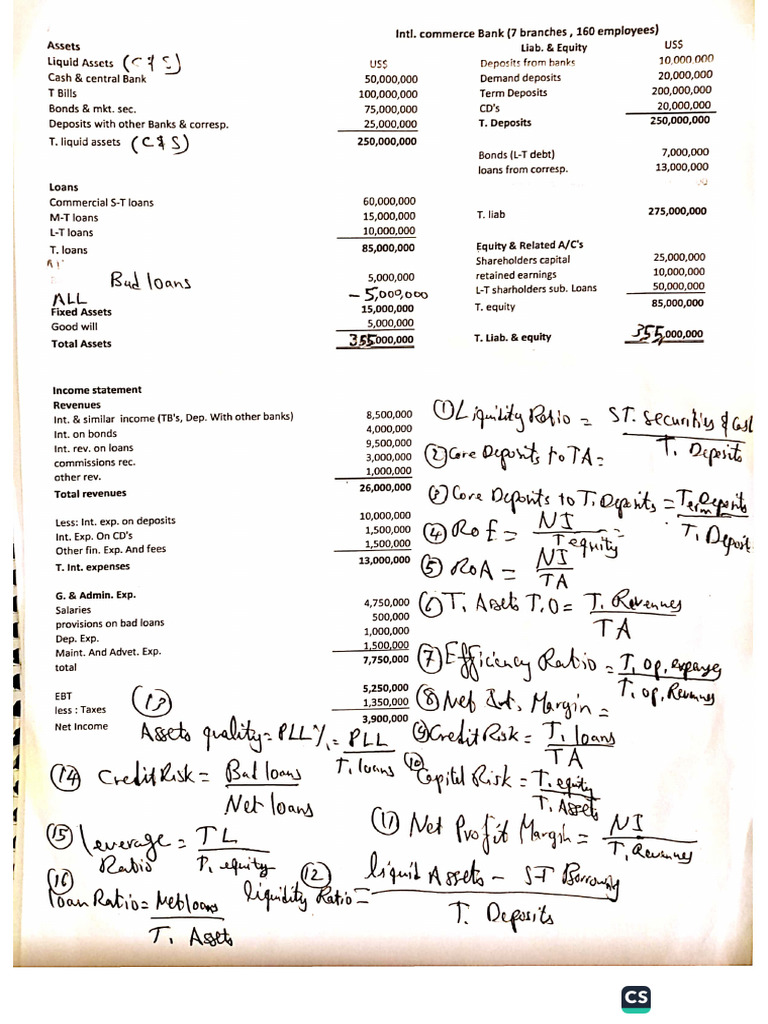 Intl. commerce Bank (7 branches , 160 employees)
Assets
Liab. & Equity US$
Liquid Assets (C & S) US$
Deposits from banks 10,000,000
Cash & central Bank 50,000,000
Demand deposits 20,000,000
T Bills 100,000,000
Term Deposits 200,000,000
Bonds & mkt. sec. 75,000,000
CD's 20,000,000
Deposits with other Banks & corresp. 25,000,000
T. Deposits 250,000,000
T. liquid assets (C & S) 250,000,000
Bonds (L-T debt) 7,000,000
loans from corresp. 13,000,000
Loans
Commercial S-T loans 60,000,000
M-T loans 15,000,000
T. liab 275,000,000
L-T loans 10,000,000
T. loans 85,000,000
Equity & Related A/C's
Shareholders capital 25,000,000
Bad loans 5,000,000
retained earnings 10,000,000
ALL - 5,000,000
L-T sharholders sub. Loans 50,000,000
Fixed Assets 15,000,000
T. equity 85,000,000
Good will 5,000,000
Total Assets 355,000,000
T. Liab. & equity 355,000,000
Income statement
Revenues
Int. & similar income (TB's, Dep. With other banks) 8,500,000
Int. on bonds 4,000,000
Int. rev. on loans 9,500,000
commissions rec. 3,000,000
other rev. 1,000,000
Total revenues 26,000,000
Less: Int. exp. on deposits 10,000,000
Int. Exp. On CD's 1,500,000
Other fin. Exp. And fees 1,500,000
T. Int. expenses 13,000,000
G. & Admin. Exp.
Salaries 4,750,000
provisions on bad loans 500,000
Dep. Exp. 1,000,000
Maint. And Advet. Exp. 1,500,000
total 7,750,000
EBT 5,250,000
less : Taxes 1,350,000
Net Income 3,900,000
① Liquidity Ratio = ST. securities & Cash
T. Deposits
② Core Deposits to TA =
③ Core Deposits to T. Deposits = Term Deposits
T. Deposit
④ RoE = NI
T equity
⑤ RoA = NI
TA
⑥ T. Assets T.O = T. Revenues
TA
⑦ Efficiency Ratio = T. op. expenses
T. op. Revenues
⑧ Net Int. Margin =
⑨ Credit Risk = T. loans
TA
⑩ Capital Risk = T. equity
T. Assets
⑪ Net Profit Margin = NI
T. Revenues
⑫ liquidity Ratio = liquid Assets - ST Borrowing
T. Deposits
⑬ Assets quality = PLL % = PLL
T. loans
⑭ Credit Risk = Bad loans
Net loans
⑮ leverage Ratio = TL
T. equity
⑯ loan Ratio = Net loans
T. Assets
CS